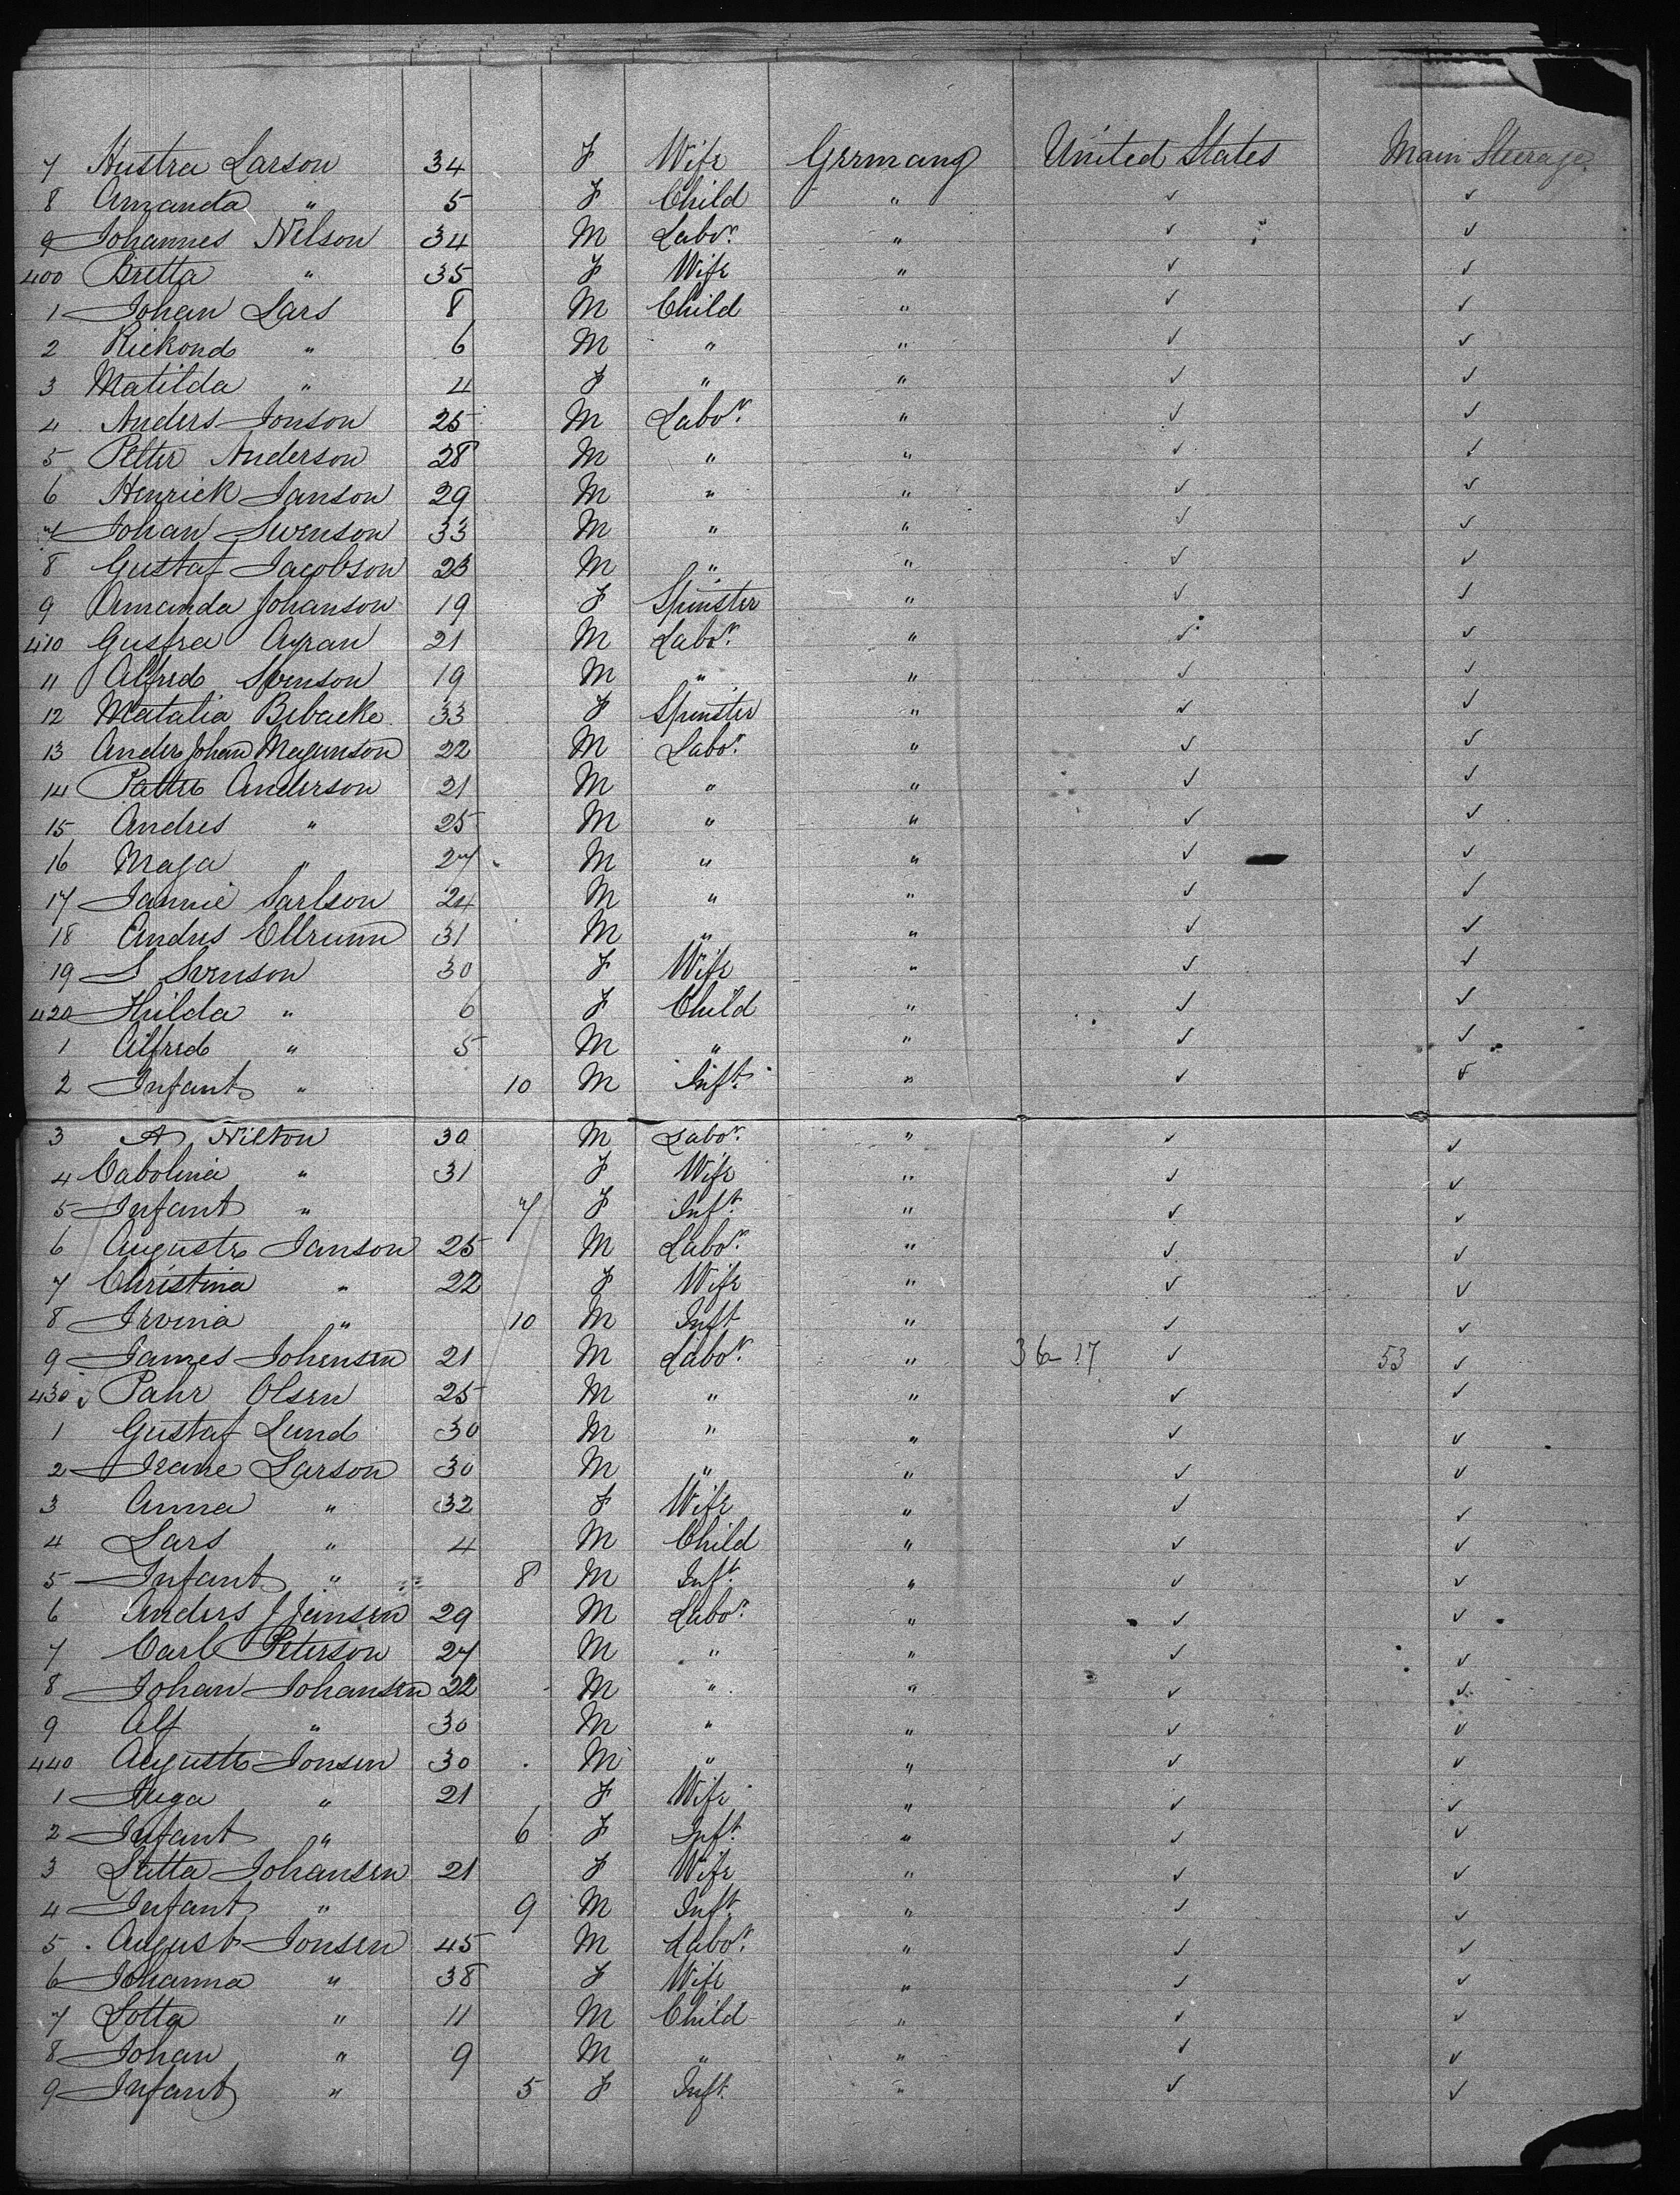 7 Hustra Larson 34 F Wife Germany United States Main Steerage
8 Amanda " 5 F Child " ✓ ✓
9 Johannes Nilson 34 M Labor. " ✓ ✓
400 Bretta " 35 F Wife " ✓ ✓
1 Johan Lars 8 M Child " ✓ ✓
2 Rickond " 6 M " " ✓ ✓
3 Matilda " 4 F " " ✓ ✓
4 Anders Jonson 25 M Labor. " ✓ ✓
5 Petter Anderson 28 M " " ✓ ✓
6 Henrick Janson 29 M " " ✓ ✓
7 Johan Swenson 33 M " " ✓ ✓
8 Gustaf Jacobson 23 M " " ✓ ✓
9 Amanda Johanson 19 F Spinster " ✓ ✓
410 Gusfra 21 M Labor. " ✓ ✓
11 Alfred Svenson 19 M " " ✓ ✓
12 Matalia 33 F Spinster " ✓ ✓
13 Anders Johan Magunson 22 M Labor. " ✓ ✓
14 Anderson 21 M " " ✓ ✓
15 Andres " 25 M " " ✓ ✓
16 Maja " 27 M " " ✓ ✓
17 Jannie Carlson 24 M " " ✓ ✓
18 Andres 31 M " " ✓ ✓
19 S Svenson 30 F Wife " ✓ ✓
420 Hilda " 6 F Child " ✓ ✓
1 Alfred " 5 M " " ✓ ✓
2 Infant " 10 M Inft. " ✓ ✓
3 A Nilton 30 M Labor. " ✓ ✓
4 Cabolina " 31 F Wife " ✓ ✓
5 Infant " 7 F Inft. " ✓ ✓
6 Auguste Janson 25 M Labor. " ✓ ✓
7 Christina " 22 F Wife " ✓ ✓
8 Irvina " 10 M Inft " ✓ ✓
9 James Johensen 21 M Labor. " 36-17 ✓ 53 ✓
430 Pahr Olsen 25 M " " ✓ ✓
1 Gustaf Lund 30 M " " ✓ ✓
2 Larson 30 M " " ✓ ✓
3 Anna " 32 F Wife " ✓ ✓
4 Lars " 4 M Child " ✓ ✓
5 Infant " 8 M Inft. " ✓ ✓
6 Anders J Jansen 29 M Labor. " ✓ ✓
7 Carl Peterson 27 M " " ✓ ✓
8 Johan Johansen 22 M " " ✓ ✓
9 Alf " 30 M " " ✓ ✓
440 Auguste Jonsen 30 M " " ✓ ✓
1 Inga " 21 F Wife " ✓ ✓
2 Infant " 6 F Inft. " ✓ ✓
3 Johansen 21 F Wife " ✓ ✓
4 Infant " 9 M Inft. " ✓ ✓
5 August Jonsen 45 M Labor. " ✓ ✓
6 Johanna " 38 F Wife " ✓ ✓
7 Lotta " 11 M Child " ✓ ✓
8 Johan " 9 M " " ✓ ✓
9 Infant " 5 F Inft. " ✓ ✓